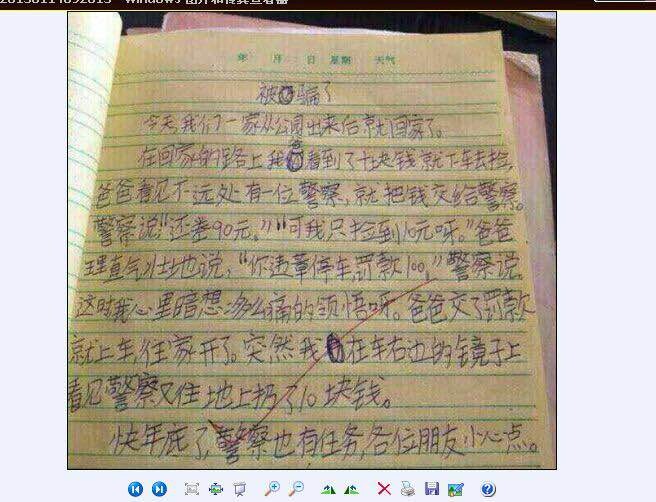 年 月 日 星期 天气
被骗了
今天,我们一家从公园出来后就回家了。
在回家的路上我看到了十块钱就下车去捡,
爸爸看见不远处有一位警察,就把钱交给警察。
警察说“还差90元。”“可我只捡到10元呀。”爸爸
理直气壮地说,“你违章停车,罚款100,”警察说。
这时我心里暗想:多么痛的领悟呀。爸爸交了罚款
就上车,往家开了。突然我在车右边的镜子上
看见警察又往地上扔了10块钱。
快年底了,警察也有任务,各位朋友小心点。